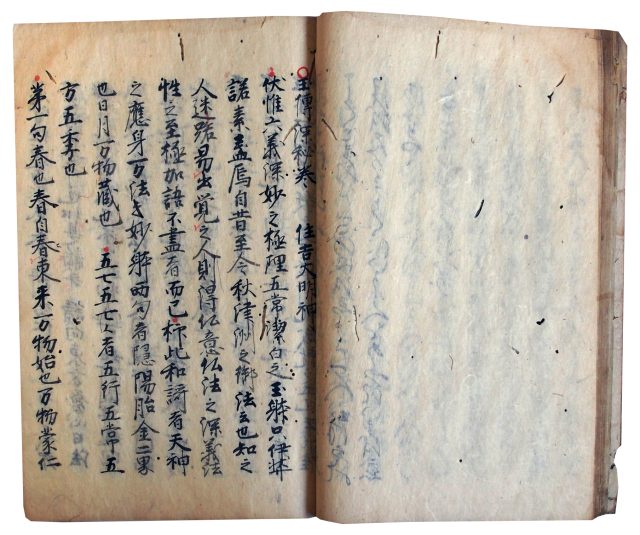 玉傳深秘巻　住吉大明神
伏惟六義深妙之極理五常潔白之玉躰只伊弉
諾素盞烏自昔至今秋津洲之御法云也知之
人迷路易出覚之人則得仏意仏法之深義法
性之至極加語不盡者而已抑此和謌者天神
之應身万法之妙躰両句者隠陽胎金二界
也日月万物蔵也　五七五七七者五行五常五
方五季也
第一句春也春自春東来万物始也万物蒙仁